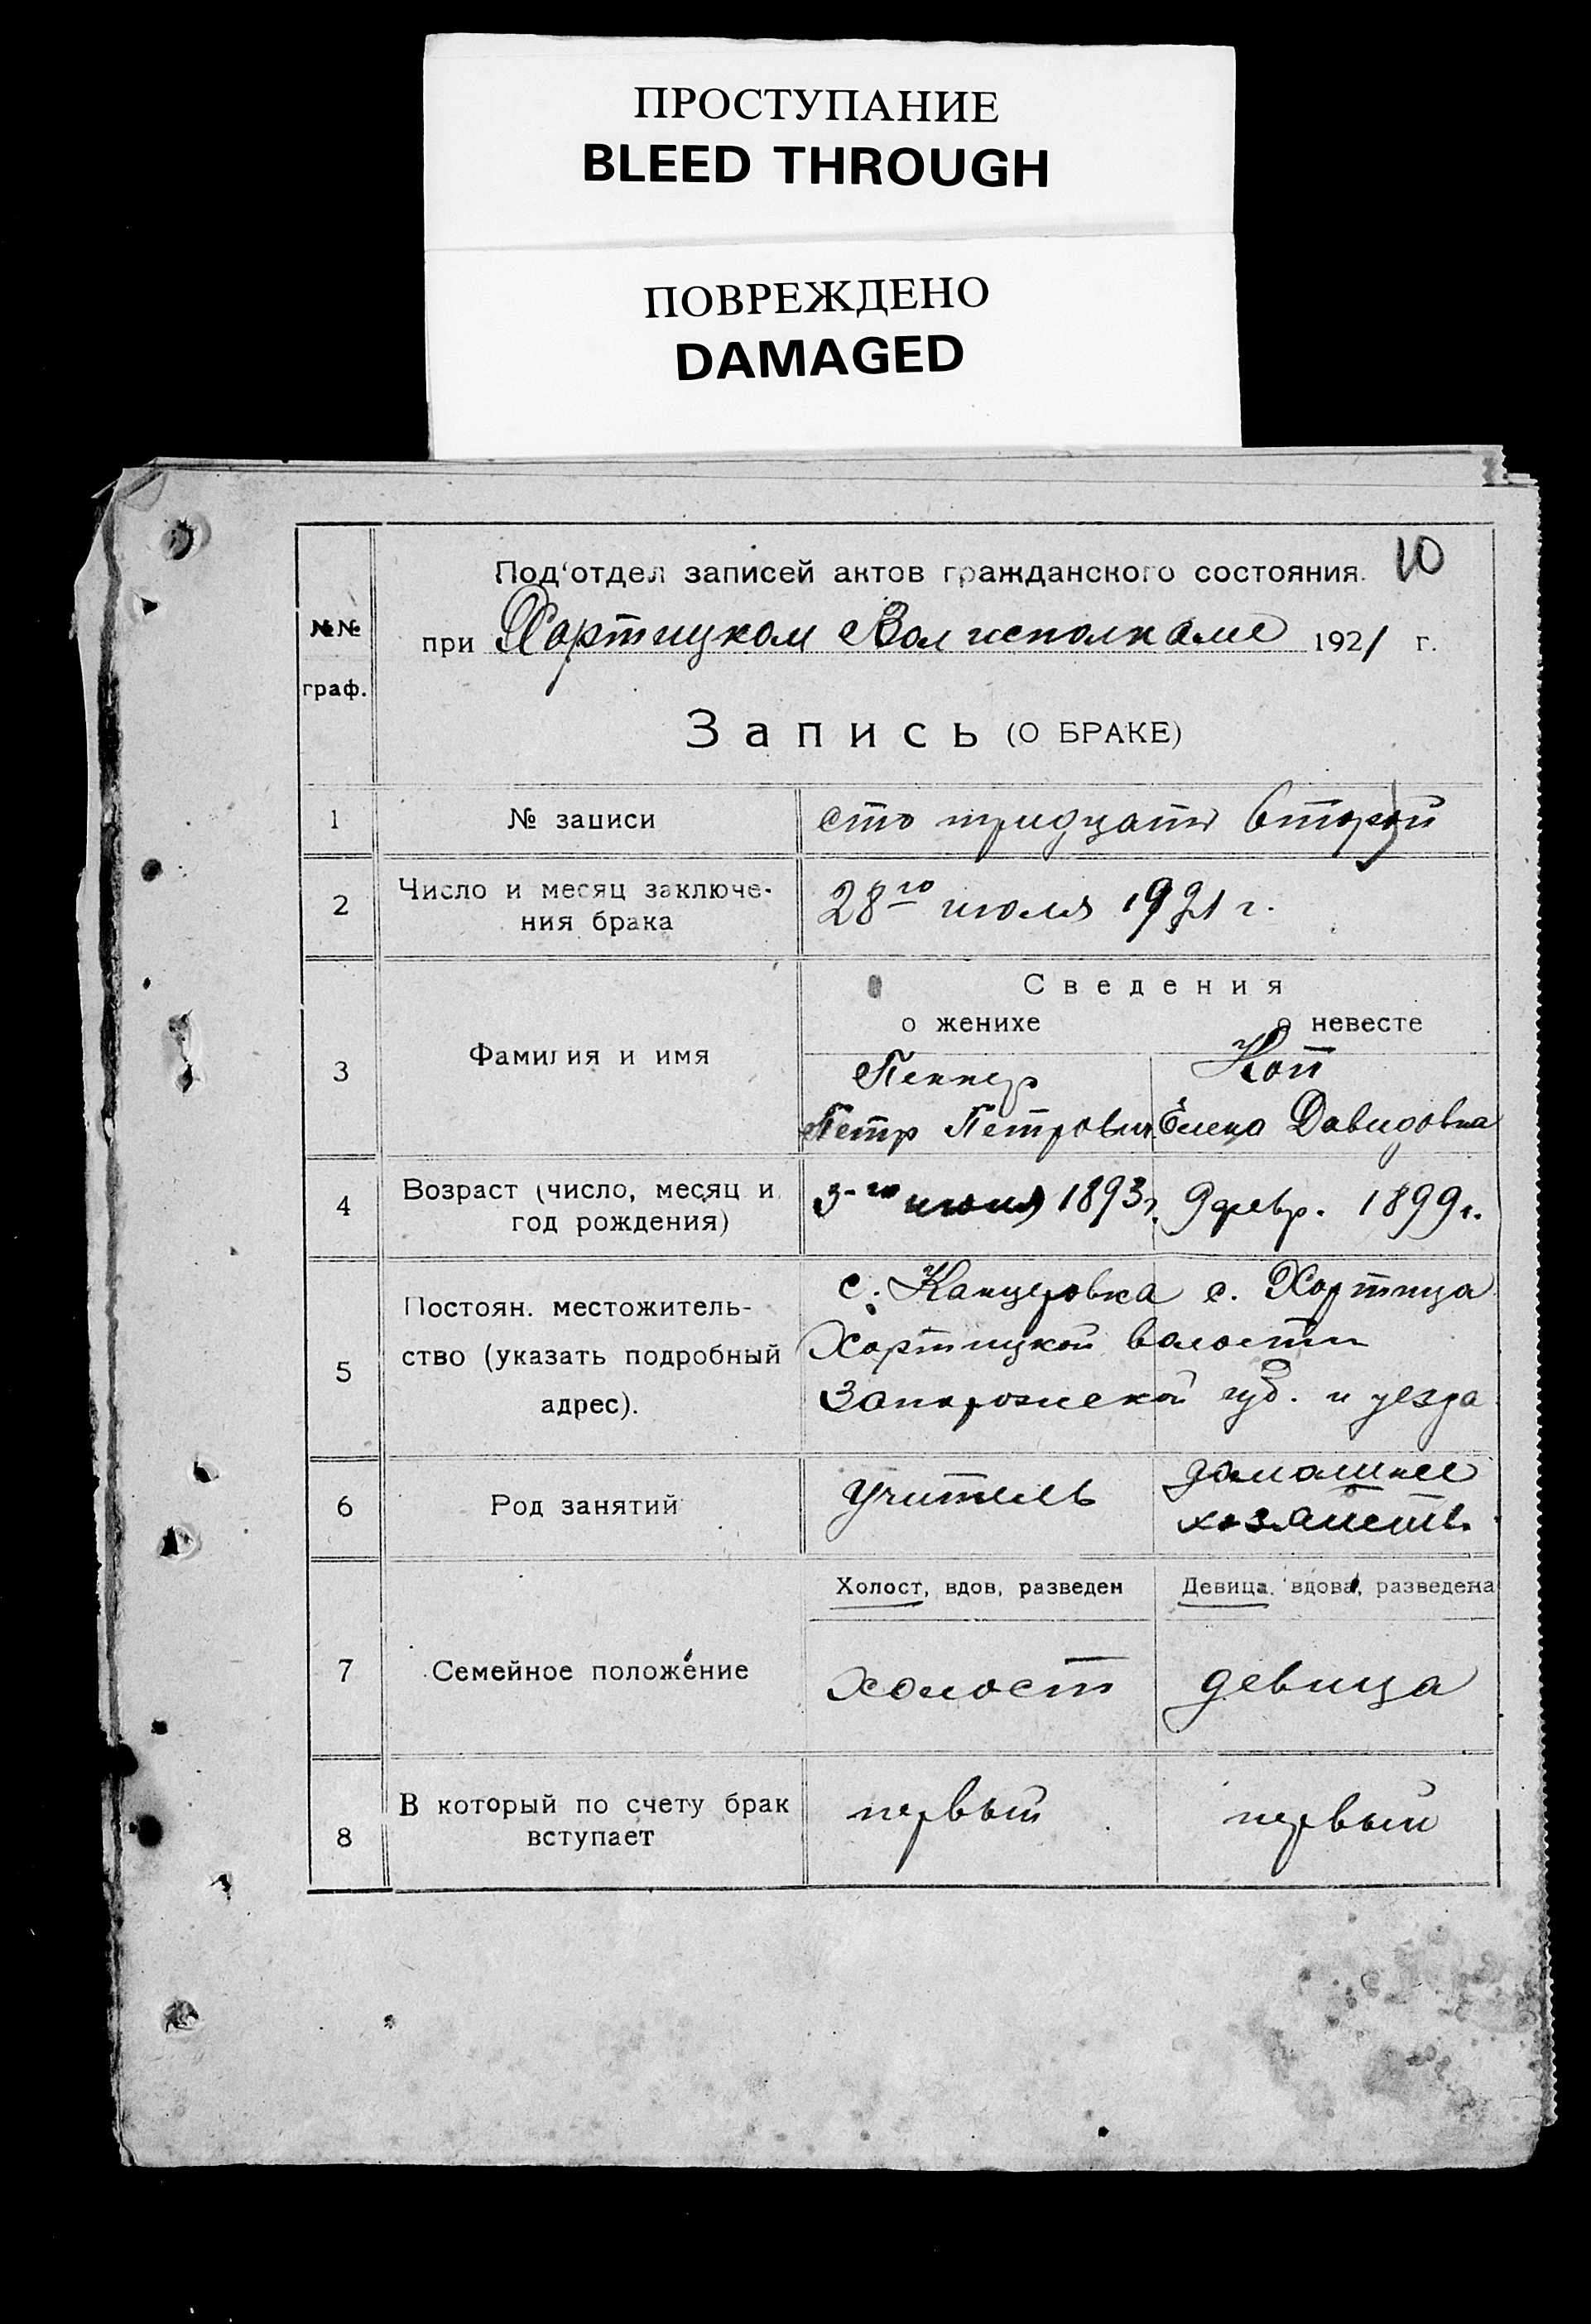 ПРОСТУПАНИЕ
BLEED THROUGH
ПОВРЕЖДЕНО
DAMAGED
10
Под'отдел записей актов гражданского состояния.
№№
граф.
при Хортицком Волисполкоме 1921 г.
Запись (О БРАКЕ)
1 № записи сто тридцать второй
2 Число и месяц заключе-
ния брака
28го июля 1921 г.
Сведения
о женихе о невесте
3 Фамилия и имя
Пеннер Коп
Петр Петрович Елена Давидовна
4 Возраст (число, месяц и
год рождения)
3-го 1893 г. 9 февр. 1899 г.
5 Постоян. местожитель-
ство (указать подробный
адрес).
с. Канцеровка с. Хортица
Хортицкой волости
Запорожской губ. и уезда
6 Род занятий учитель домашнее
хозяйств.
Холост, вдов, разведен Девица, вдова, разведена
7 Семейное положение холост девица
8 В который по счету брак
вступает
первый первый